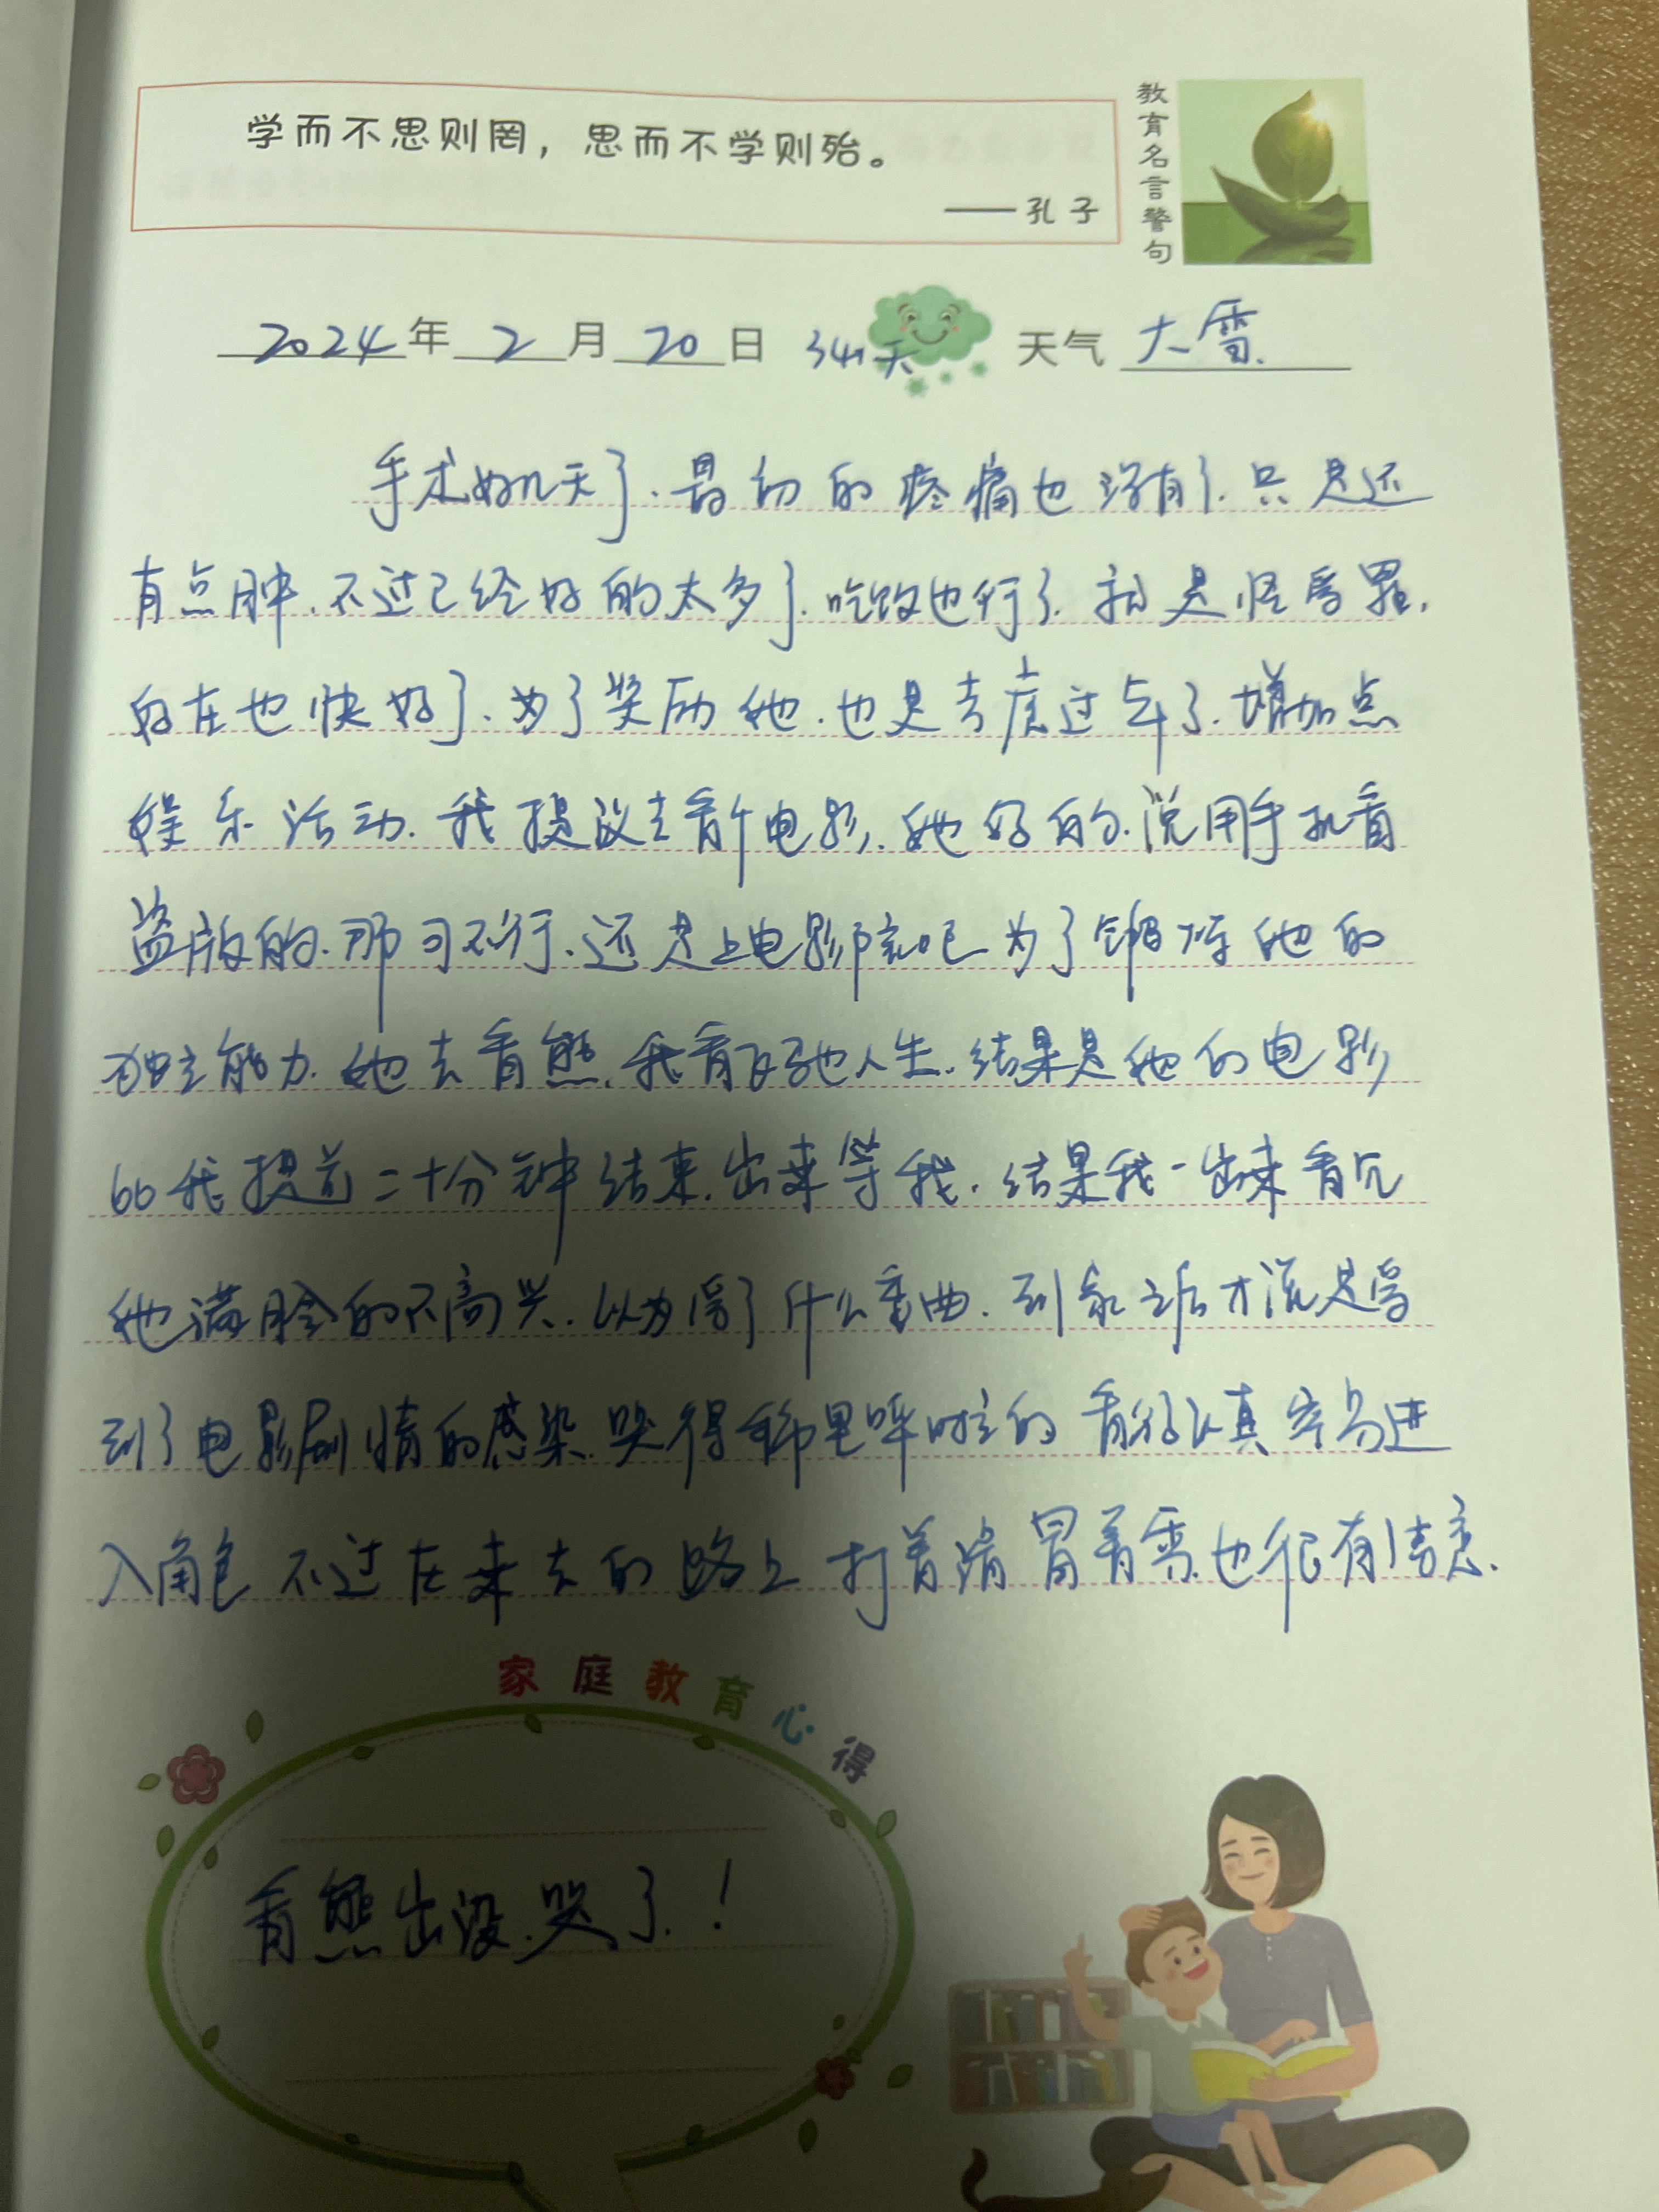 学而不思则罔，思而不学则殆。
——孔子
教育名言警句
2024年2月20日 341天 天气 大雪.
手术好几天了.最初的疼痛也没有了.只是还
有点肿.不过已经好的太多了.吃饭也行了.就是怪受罪.
好在也快好了.为了奖励她.也是去度过年了.增加点
娱乐活动.我提议去看个电影.她好的.说用手机看
盗版的.那可不行.还是上电影院吧 为了锻炼她的
独立能力.她去看熊.我看飞驰人生.结果是她的电影
bb我提前二十分钟结束.出来等我.结果我一出来看见
她满脸的不高兴.以为受了什么委曲.到家之后才说是受
到了电影剧情的感染.哭得稀里哗啦的 看得认真 容易进
入角色 不过在来去的路上 打着滑 冒着雪.也很有诗意.
家庭教育心得
看熊出没.哭了.！